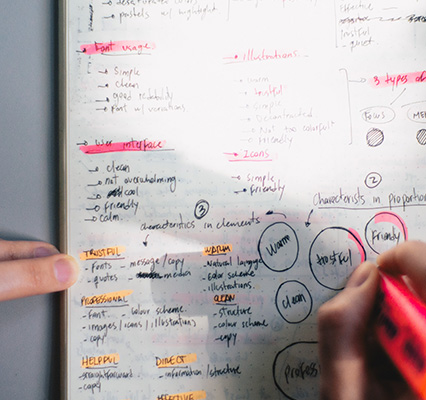 pastels w/ highlight
Font usage
simple
clean
good readability
font w/ variations
User interface
clean
not overwhelming
cool
friendly
calm.
illustrations
warm
trustful
simple
Not too colorful
friendly
Icons
simple
friendly
trustful
quiet
3 types of
FOCUS
2
characteristics in proportion
warm
trustful
friendly
clean
3
characteristics in elements
TRUSTFUL
- Fonts - message/copy
- quotes - media
PROFESSIONAL
- font - colour scheme.
- images/icons/illustrations
- copy
HELPFUL
- straightforward
copy
WARM
- Natural language
- color scheme.
- illustrations.
CLEAN
- structure
- colour scheme
- copy
DIRECT
- information/structure